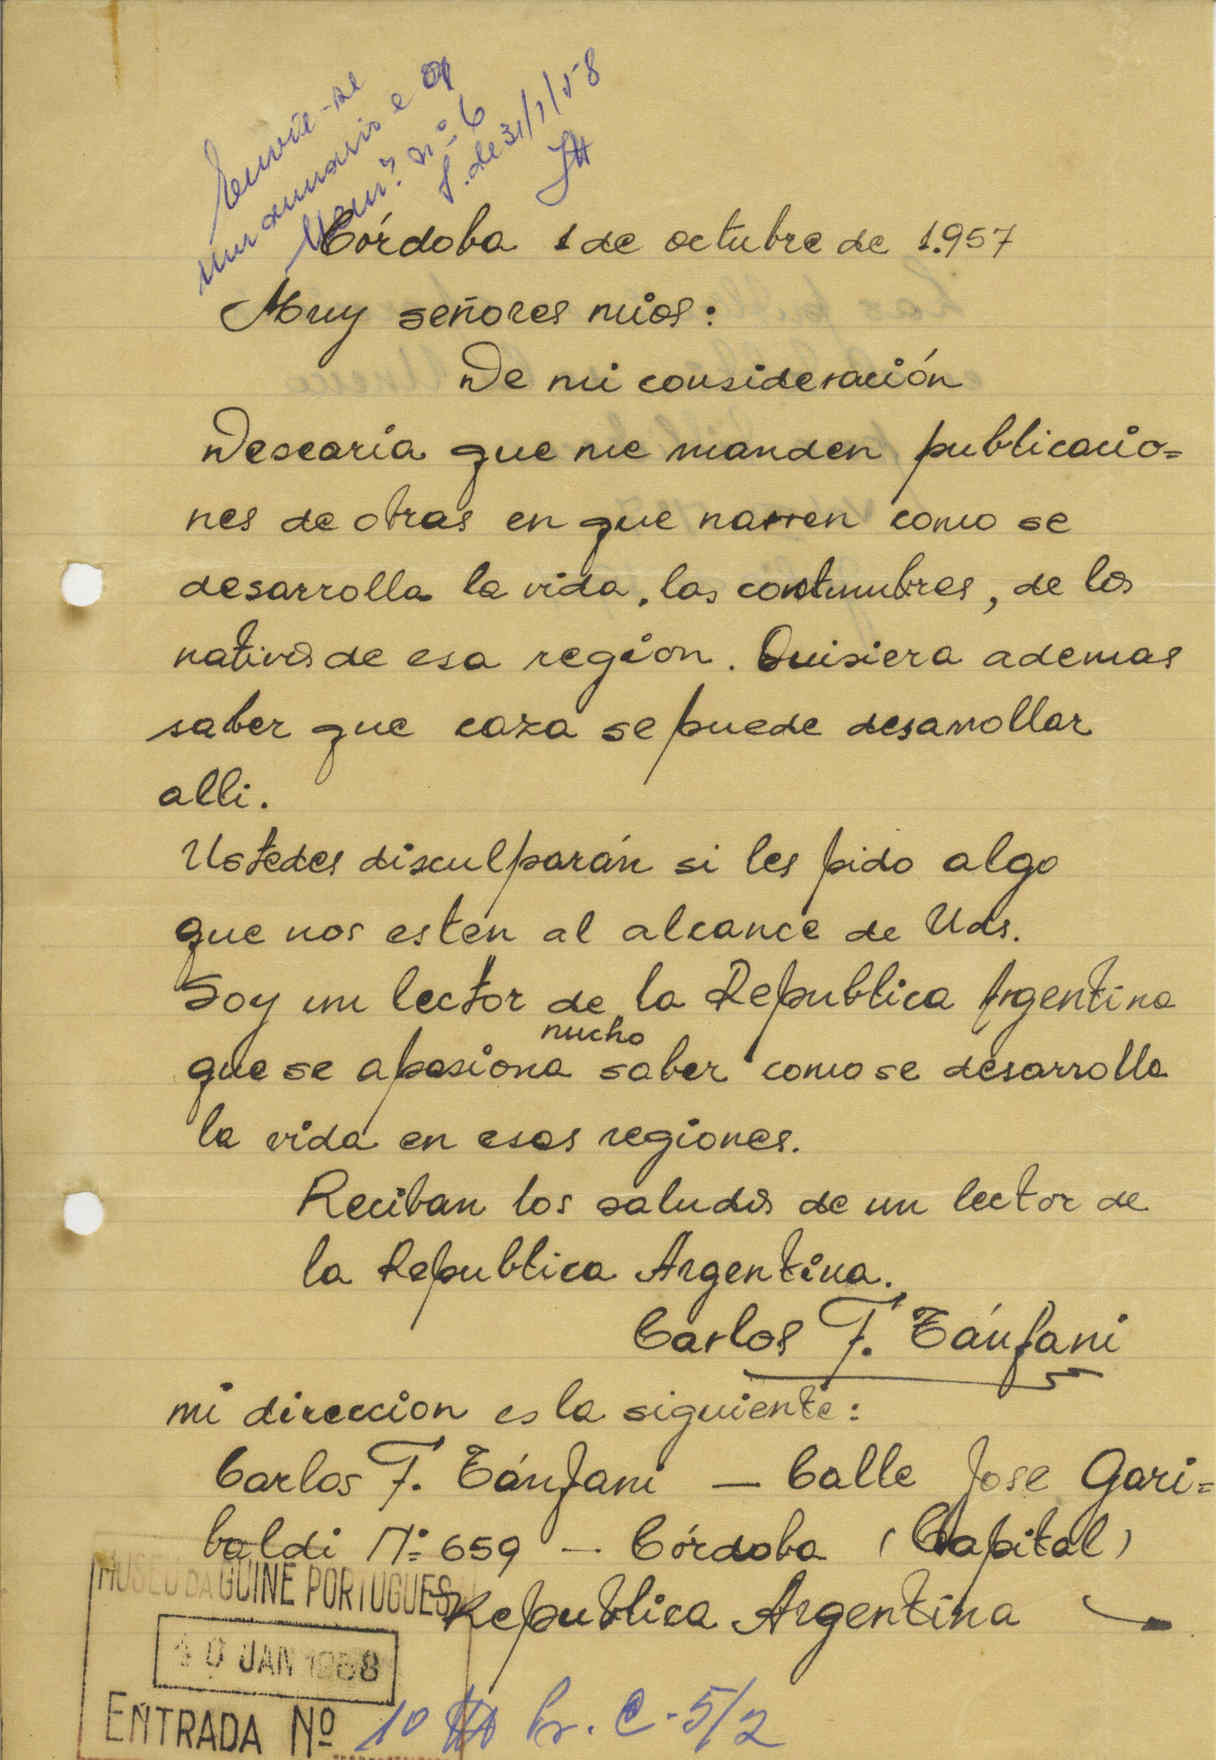 Envie-se
um anuario e
nº 6
de 31/1/58
Córdoba 1 de octubre de 1.957
Muy señores mios:
De mi consideración
Desearia que me manden publicacio=
nes de obras en que narren como se
desarrolla la vida, las contumbres, de los
nativos de esa region. Quisiera ademas
saber que caza se puede desarrollar
alli.
Ustedes disculparán si les pido algo
que nos esten al alcance de Uds.
Soy un lector de la Republica Argentina
mucho
que se apasiona saber como se desarrolla
la vida en esas regiones.
Reciban los saludos de un lector de
la Republica Argentina.
Carlos F. Tánfani
mi direccion es la siguiente:
Carlos F. Tánfani — Calle Jose Gari=
baldi Nº 659 — Córdoba (Capital)
Republica Argentina
MUSEU DA GUINÉ PORTUGUESA
JAN 1958
ENTRADA Nº 10 C-5/2